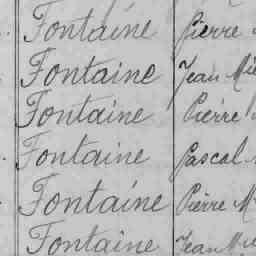 Fontaine Pierre
Fontaine Jean Mie
Fontaine Pierre
Fontaine Pascal
Fontaine Pierre M
Fontaine Jean M